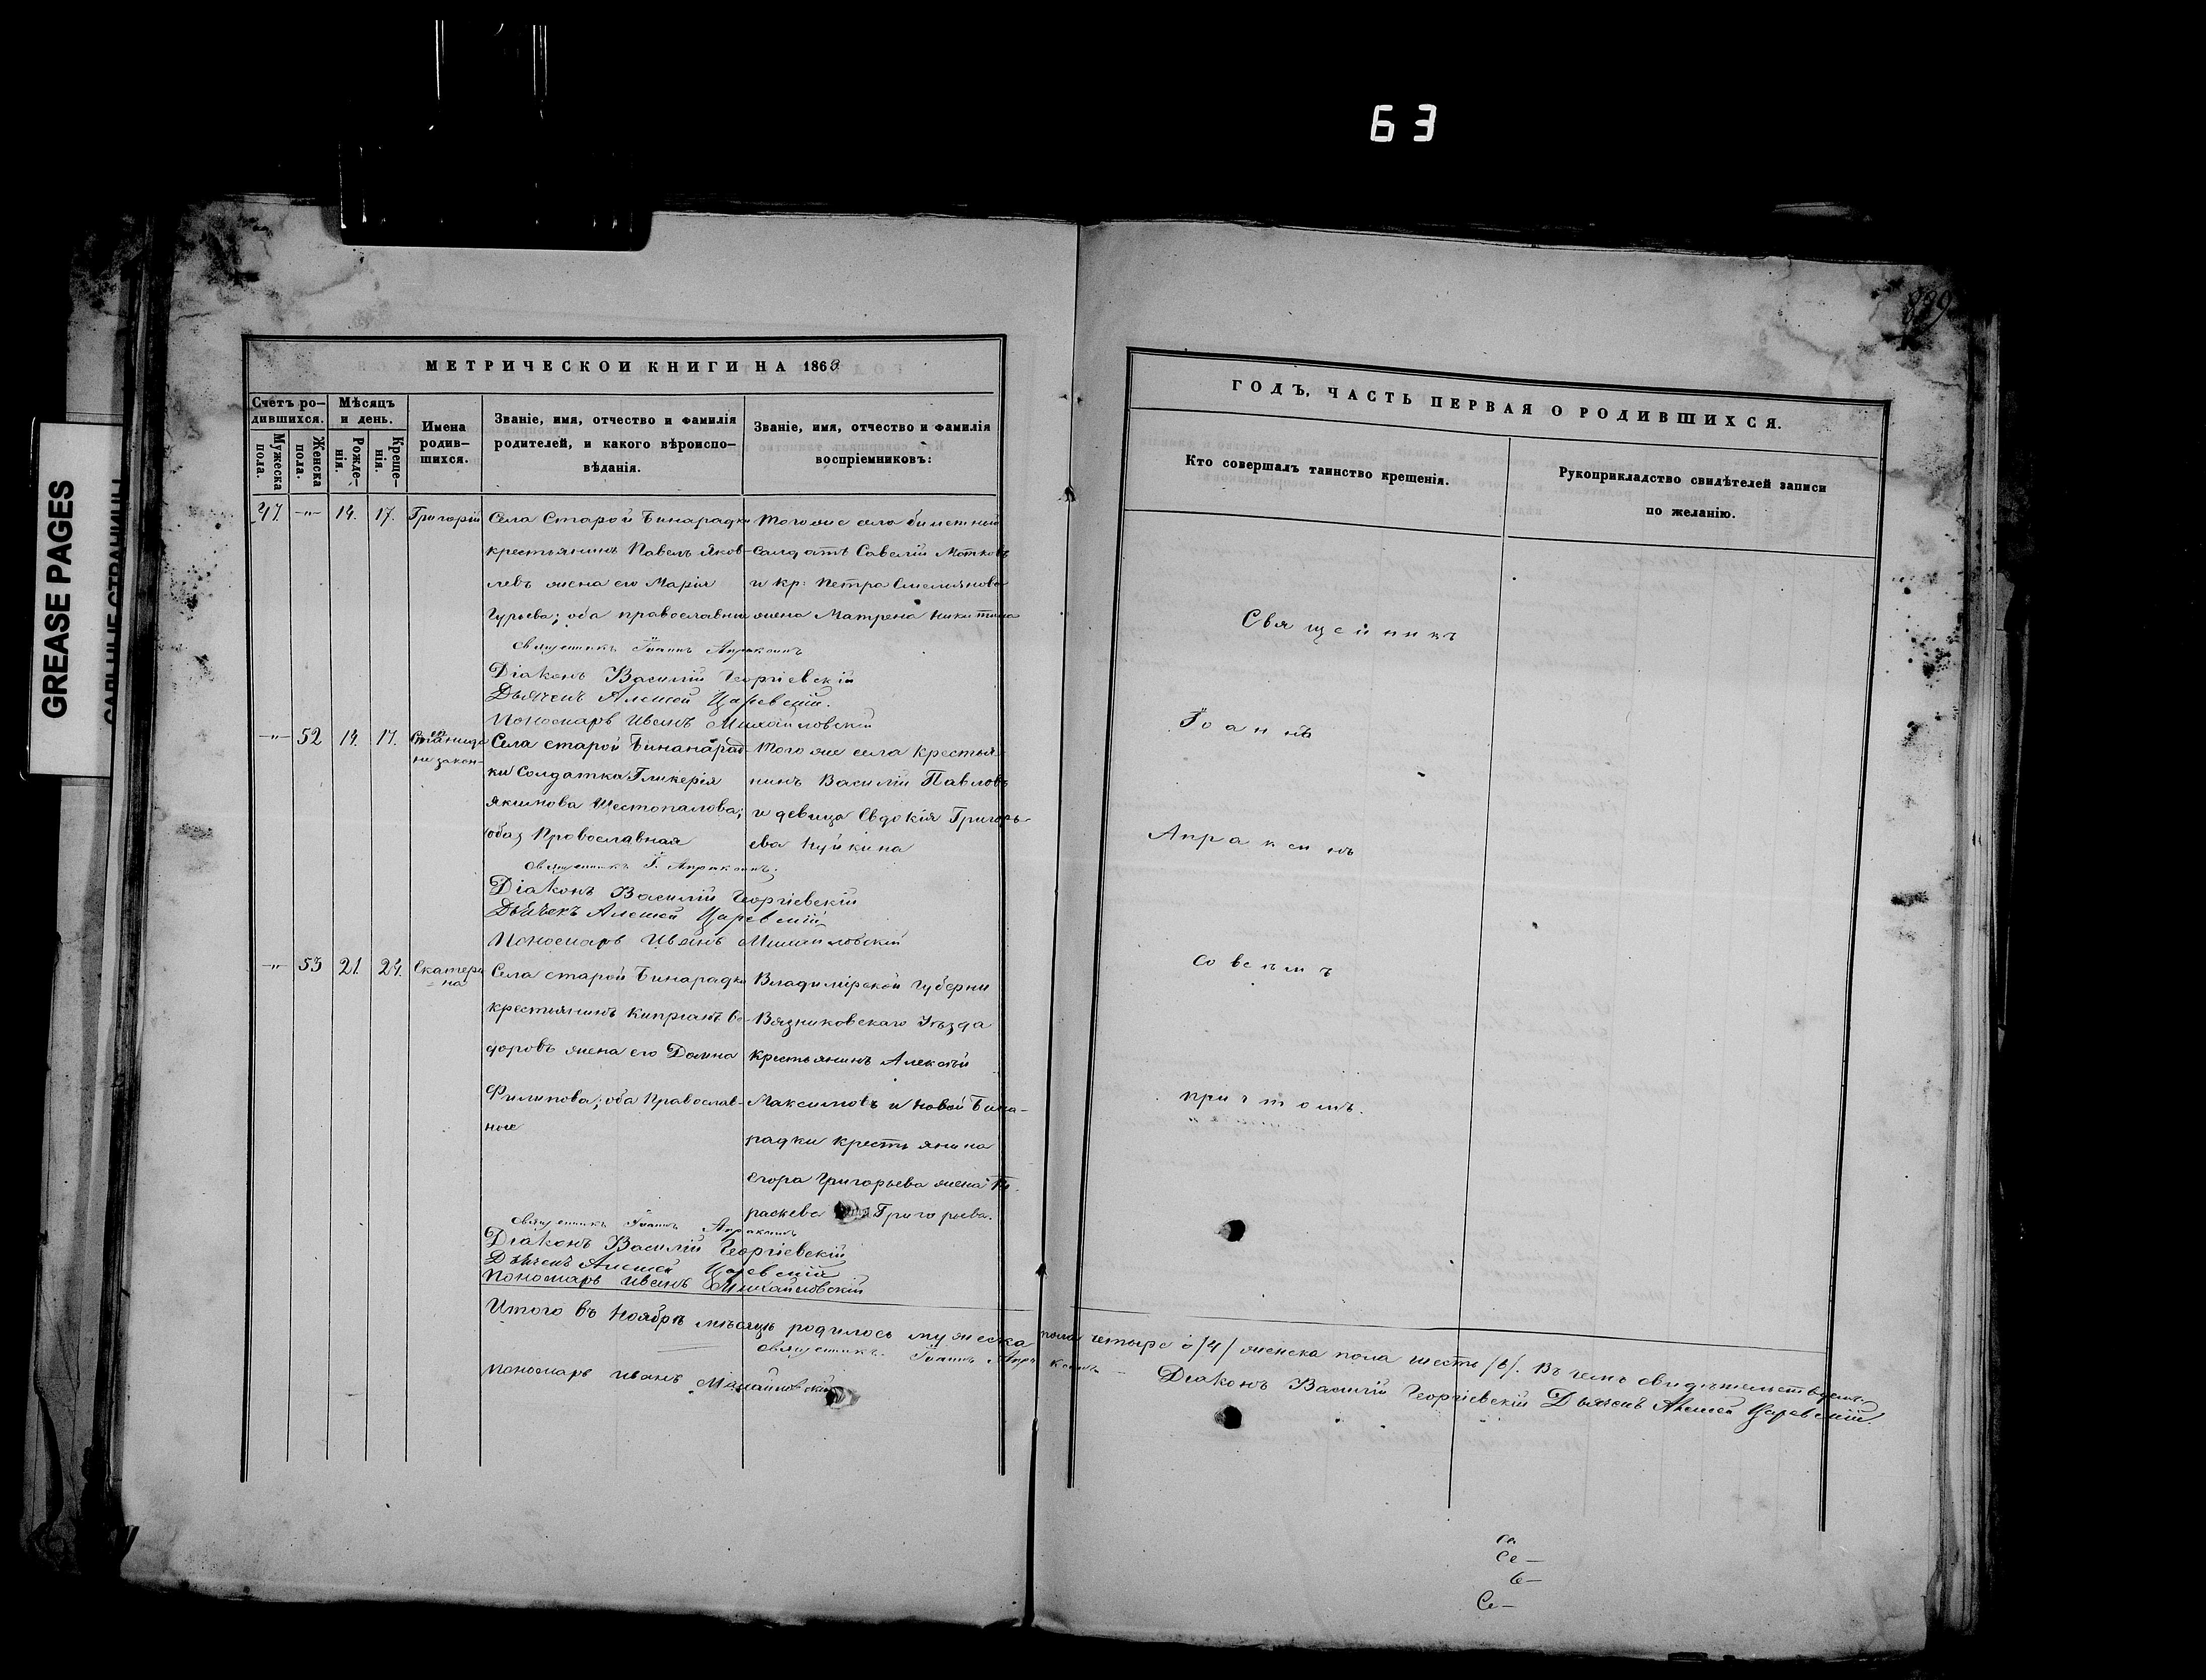 63
839
GREASE PAGES
МЕТРИЧЕСКОЙ КНИГИ НА 1868
Счетъ ро-
дившихся.
Мѣсяцъ
и день.
Мужеска
пола.
Женска
пола.
Рожде-
нія.
Креще-
нія.
Имена
родив-
шихся.
Званіе, имя, отчество и фамилія
родителей, и какого вѣроиспо-
вѣданія.
Званіе, имя, отчество и фамилія
воспріемниковъ:
47. -"- 14. 17. Григорій
Села Старой Бинарадки
крестьянинъ Павелъ Яков-
левъ жена его Марія
Гурьева; оба православные
Тогоже села билетный
солдатъ Савелій
и кр: Петра Емельянова
жена Матрена Никитина
Священникъ Іоаннъ Апраксинъ
Діаконъ Василій Георгіевскій
Дьячекъ Алексей Царевскій.
Пономарь Иванъ Михайловскій
-"- 52 14. 17.
незакон-
Села старой Бинанарад-
ки Солдатка Гликерія
Якимова Шестопалова;
Православная
Того же села крестья-
нинъ Василій Павловъ
и девица Евдокія Григорь-
ева
Священникъ І. Апраксинъ.
Діаконъ Василій Георгіевскій
Дьячекъ Алексей Царевскій
Пономарь Иванъ Михайловскій
-"- 53 21. 24. Екатери
-на
Села старой Бинарадки
крестьянинъ Кипріанъ Ѳе-
доровъ жена его Домна
Филипова; оба Православ-
ные
Владимірской Губерни
Вязниковскаго Уѣзда
Крестьянинъ Алексѣй
Максимовъ и Новой Бина-
радки крестьянина
Егора Григорьева жена Па-
раскева Григорьева.
Священникъ Іоаннъ Апраксинъ
Діаконъ Василій Георгіевскій
Дьячекъ Алексей Царевскій
Пономарь Иванъ Михайловскій
Итого въ Ноябрѣ мѣсяцѣ родилось мужеска пола четыре /4/ женска пола шесть /6/. Въ чемъ свидѣтельствуемъ.
Священникъ Іоаннъ Апраксинъ Діаконъ Василій Георгіевскій Дьячекъ Алексей Царевскій.
Пономарь Иванъ Михайловскій
ГОДЪ, ЧАСТЬ ПЕРВАЯ О РОДИВШИХСЯ.
Кто совершалъ таинство крещенія.
Рукоприкладство свидѣтелей записи
по желанію.
Священникъ
Іоаннъ
Апраксинъ
со всѣмъ
причтомъ.